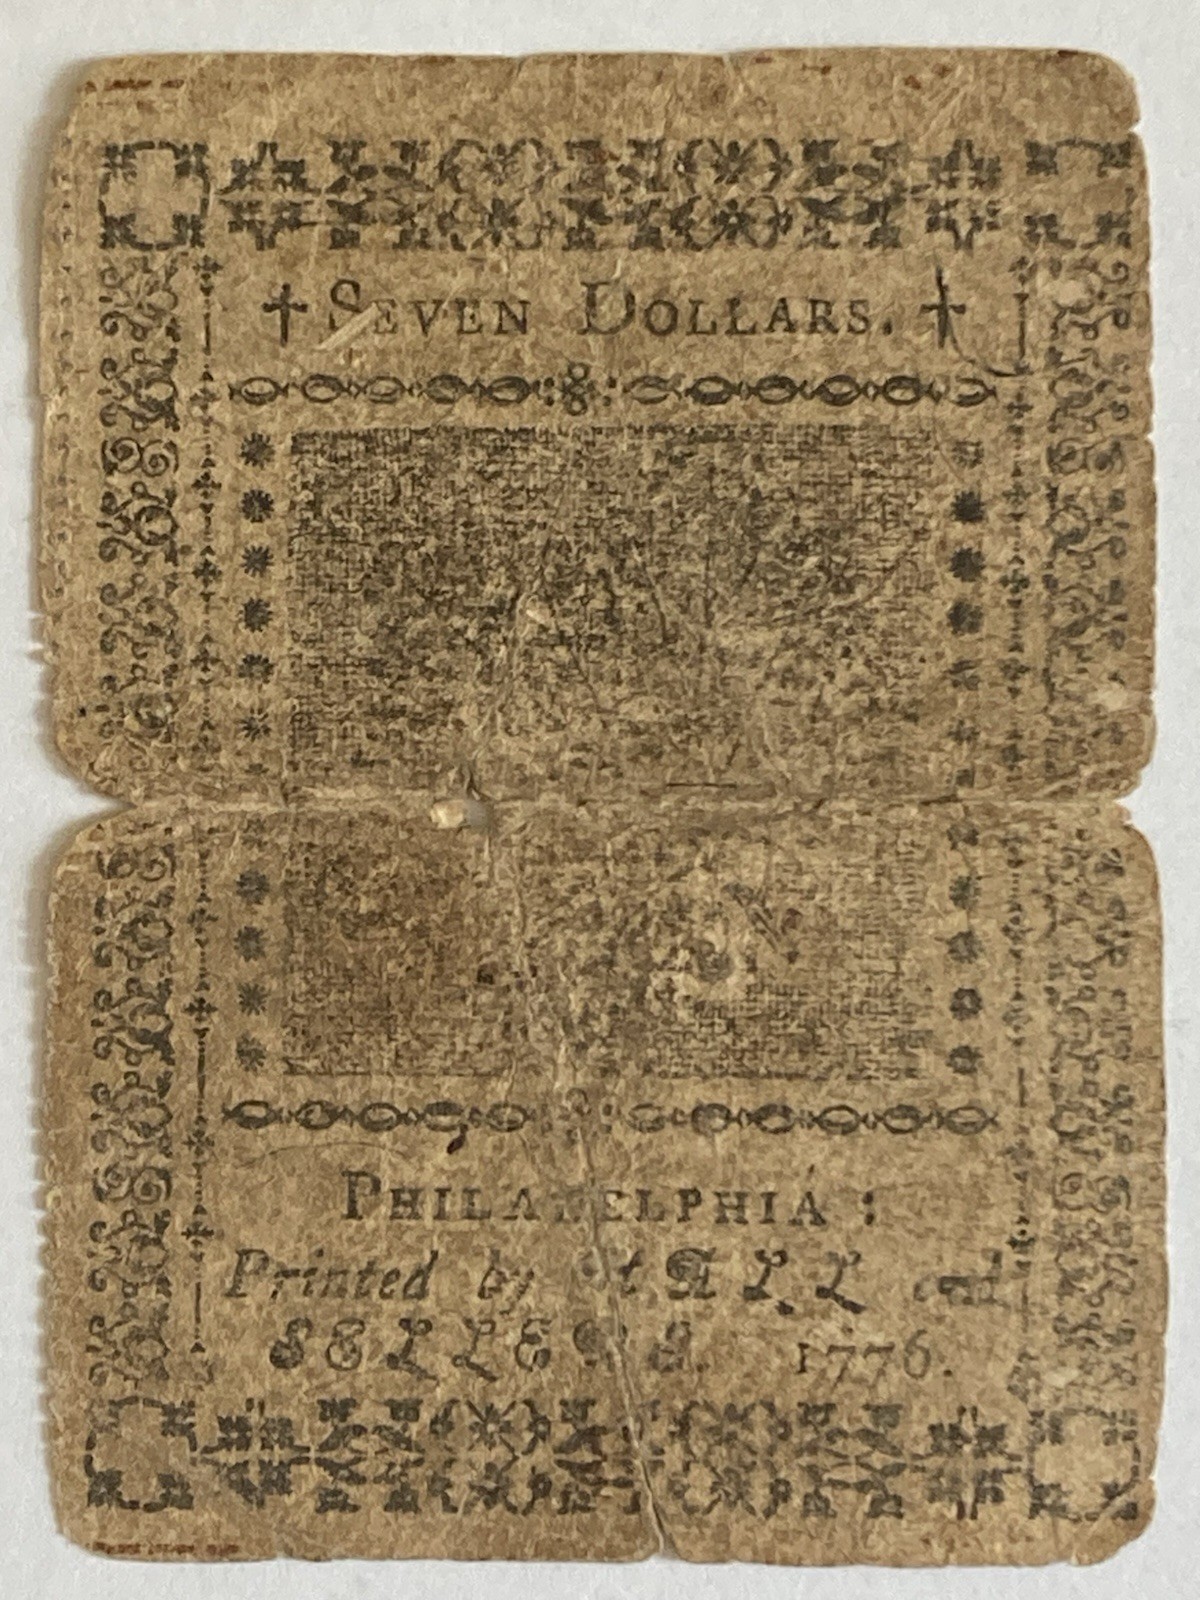 † SEVEN DOLLARS. †
PHILADELPHIA :
Printed by HALL and
SELLERS. 1776.